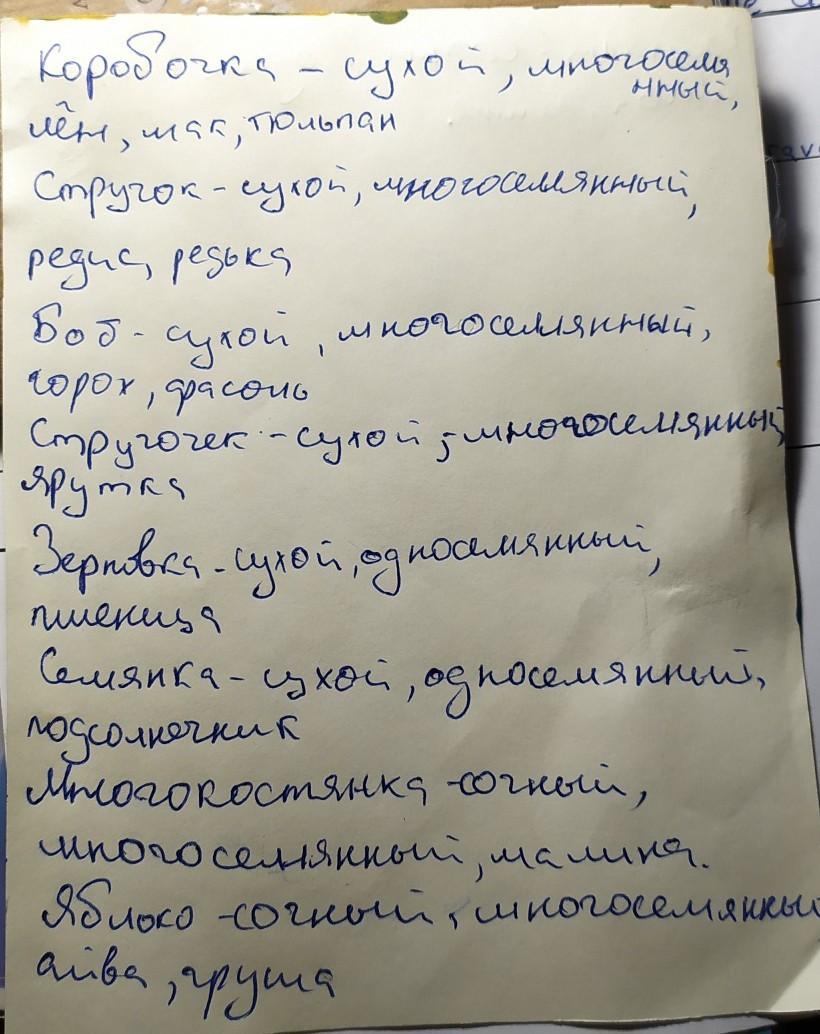 Коробочка - сухой, многосемя
нный,
лён, мак, тюльпан
Стручок - сухой, многосемянный,
редис, редька
Боб - сухой, многосемянный,
горох, фасоль
Стручочек - сухой, многосемянный
ярутка
Зерновка - сухой, односемянный,
пшеница
Семянка - сухой, односемянный,
подсолнечник
Многокостянка - сочный,
многосемянный, малина.
Яблоко - сочный, многосемянный
айва, груша